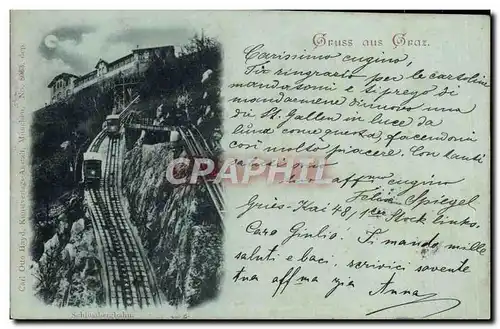 Gruss aus Graz.
Carissimo cugino,
Ti ringrazio per le cartoline
mandatomi e ti prego di
mandarmene di nuovo una
di St. Gallen in luce da
luna come questa, facendomi
così molto piacere. Con tanti
saluti
tuo affmo cugino
Felix Spiegel
Gries-Kai 48, 1ter Stock links.
Caro Giulio! Ti mando mille
saluti e baci. scrivici sovente
tua affma zia
Anna
Schlossbergbahn.
Carl Otto Hayd, Kunstverlags-Anstalt, München. No. dep.
CPARAMA